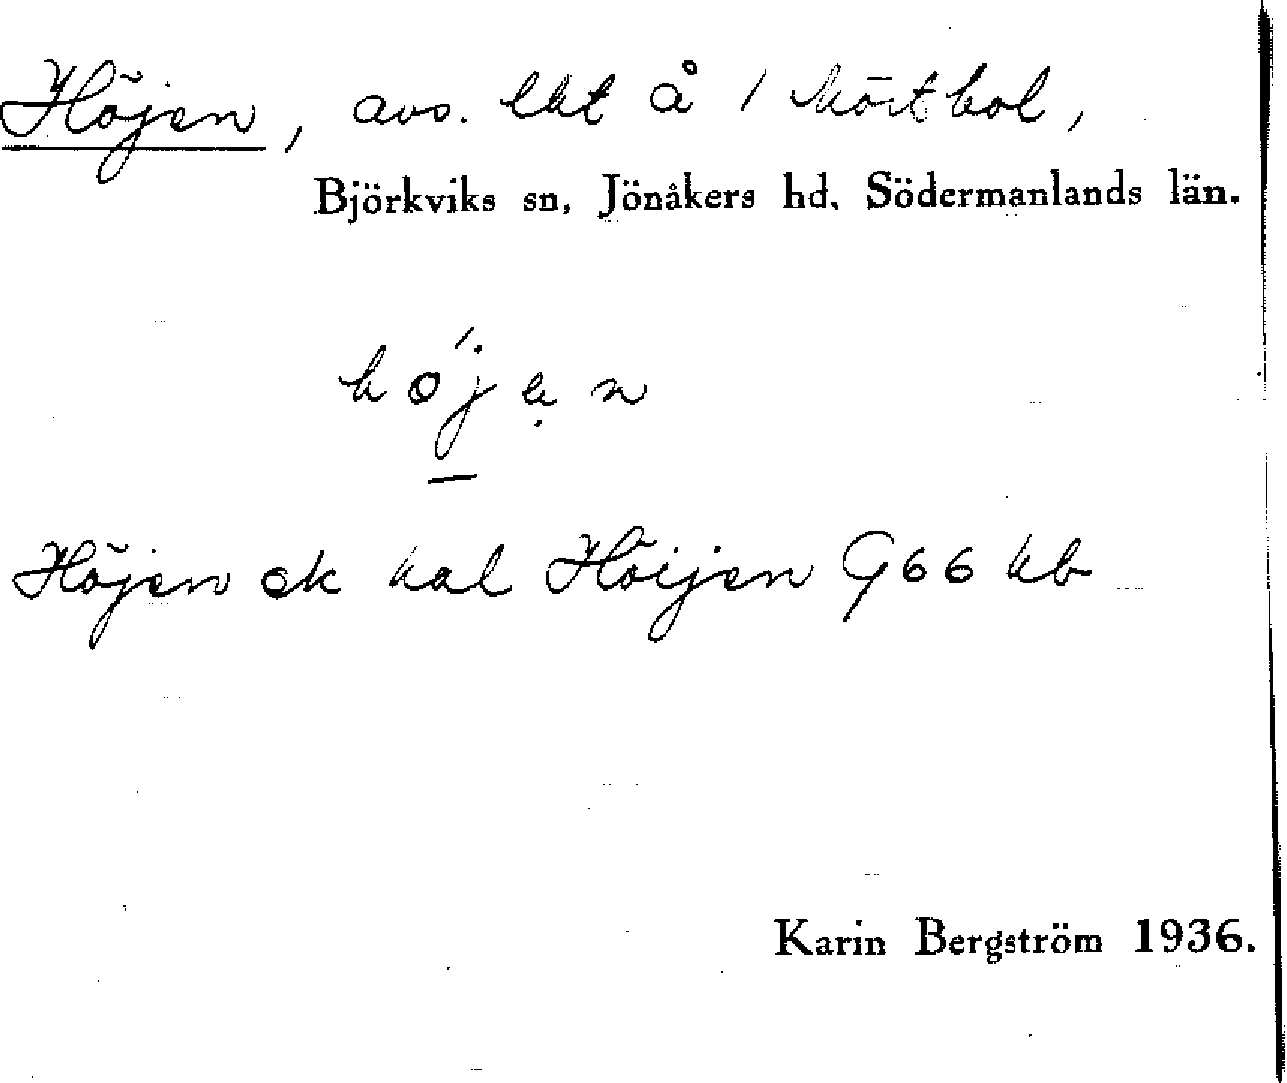 Höjen, avs. lht å 1 Mörtbol,
Björkviks sn, Jönåkers hd, Södermanlands län.
höjen
Höjen ek kal Höijen G66 hb
Karin Bergström 1936.